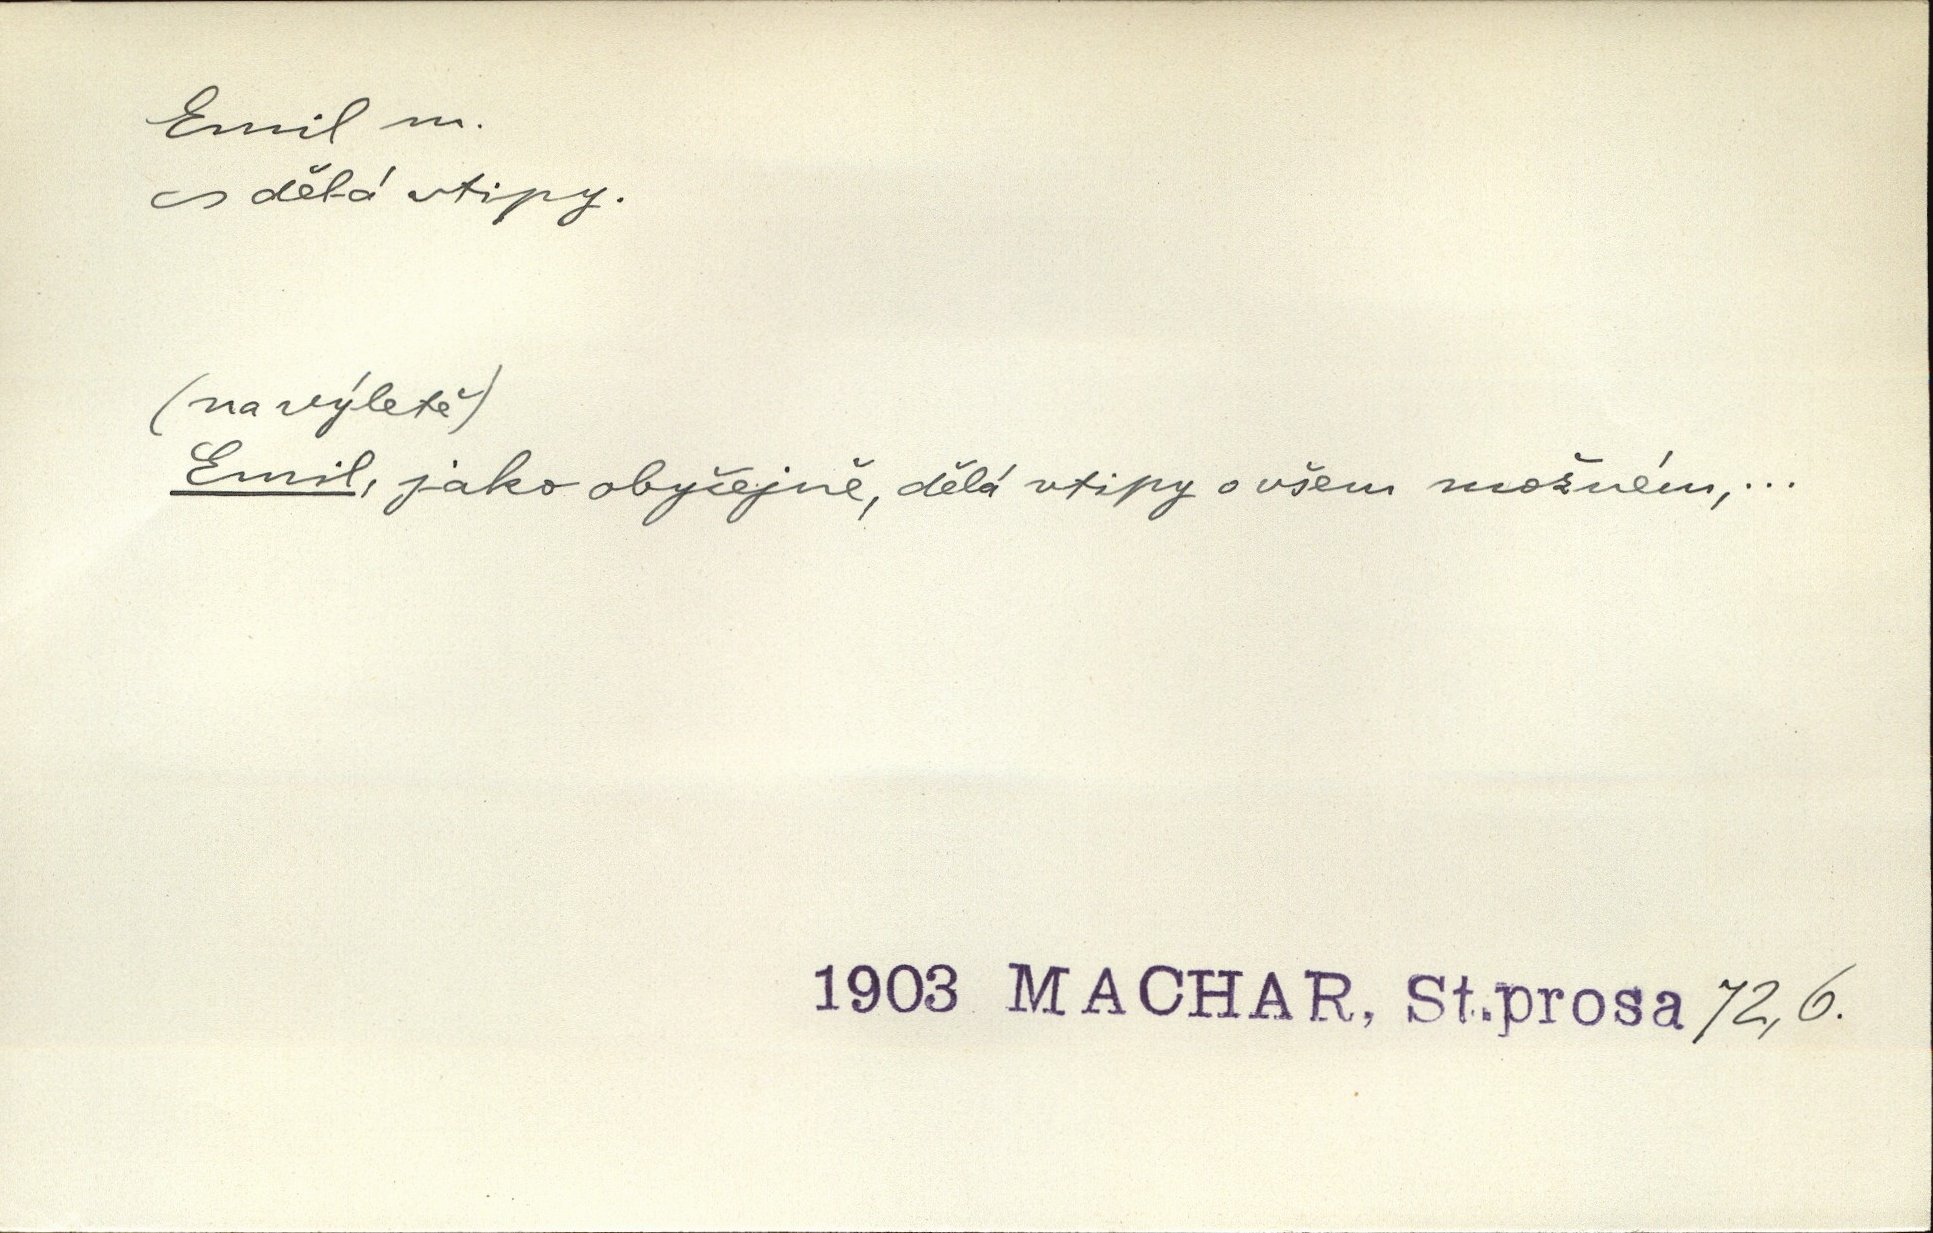 Emil m.
∽ dělá vtipy.
(na výletě)
Emil, jako obyčejně, dělá vtipy o všem možném,...
1903 MACHAR, St.prosa 72,6.